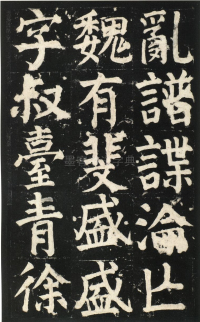 亂譜諜淪亡
魏有斐盛盛
字叔臺青徐